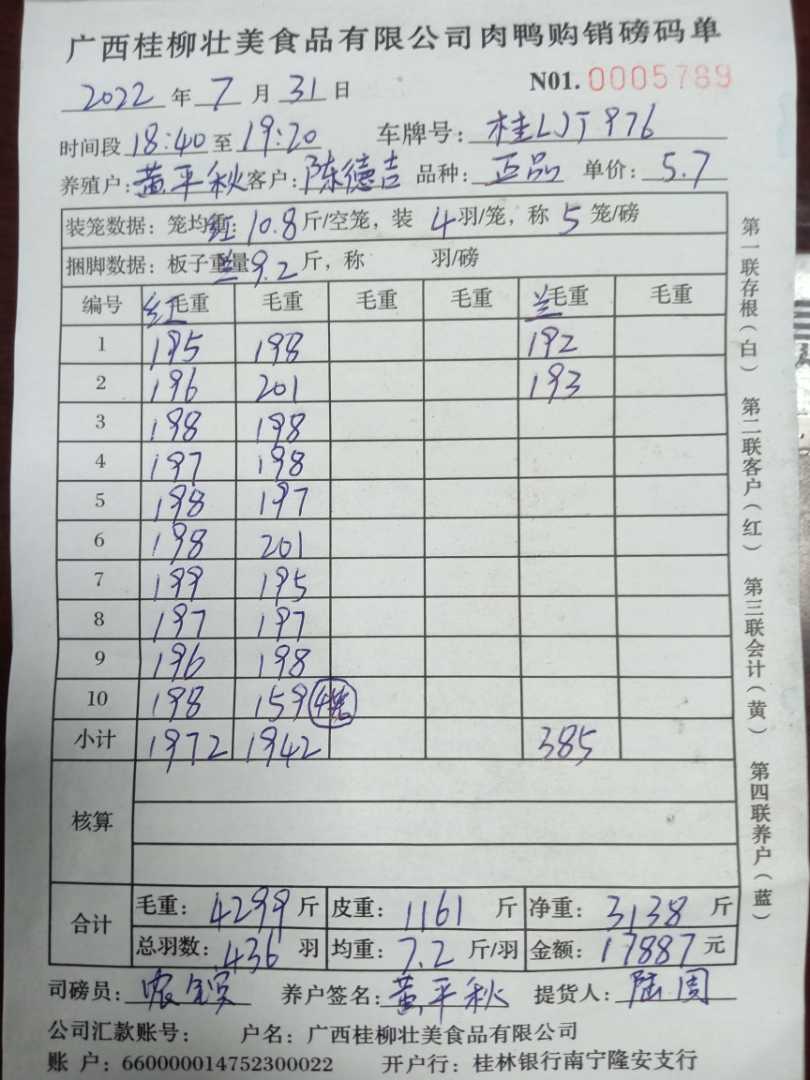 广西桂柳壮美食品有限公司肉鸭购销磅码单
2022年7月31日 N01. 0005789
时间段18:40至19:20 车牌号：桂LJT976
养殖户：黄平秋 客户：陈德吉 品种：正品 单价：5.7
装笼数据：笼均重：红10.8斤/空笼，装4羽/笼，称5笼/磅
捆脚数据：板子重量兰9.2斤，称 羽/磅
编号 红毛重 毛重 毛重 毛重 兰毛重 毛重
1 195 198 192
2 196 201 193
3 198 198
4 197 198
5 198 197
6 198 201
7 199 195
8 197 197
9 196 198
10 198 159 4笼
小计 1972 1942 385
核算
合计 毛重：4299斤 皮重：1161斤 净重：3138斤
总羽数：436羽 均重：7.2斤/羽 金额：17887元
司磅员： 养户签名：黄平秋 提货人：陆周
公司汇款账号： 户名：广西桂柳壮美食品有限公司
账 户：660000014752300022 开户行：桂林银行南宁隆安支行
第一联存根（白） 第二联客户（红） 第三联会计（黄） 第四联养户（蓝）